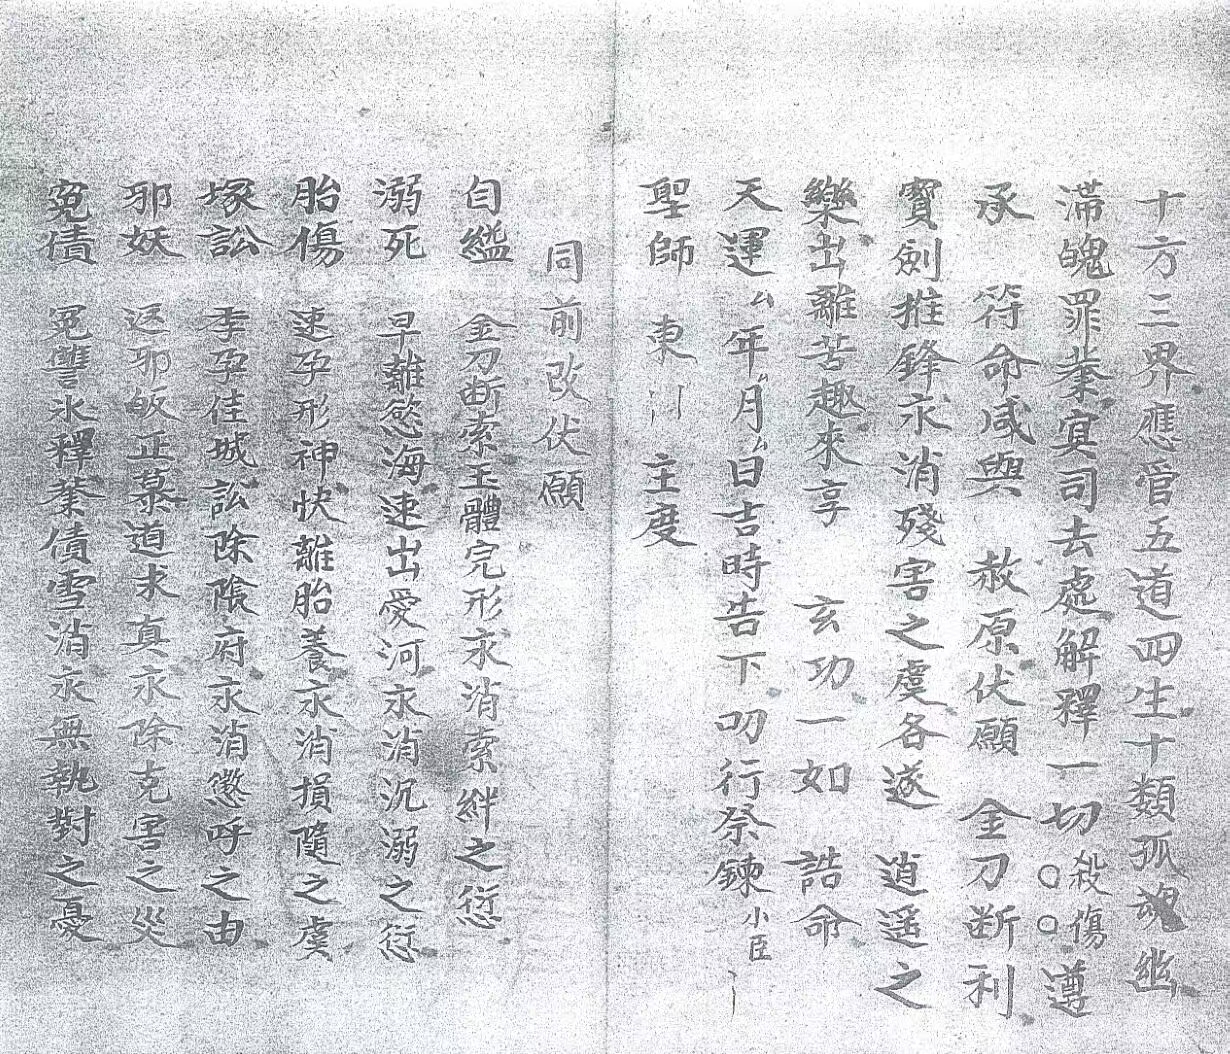 十方三界應管五道四生十類孤魂幽
滯魄罪業㝠司去處解釋一切殺傷○○遵
承　符命咸與　赦原伏願　金刀断利
寳劍推鋒永消殘害之虞各遂　逍遥之
樂出離苦趣來享　玄功一如　誥命
天運厶年厶月厶日吉時告下叨行祭鍊小臣
聖師　東川　主度
同前改伏願
自縊　金刀断索玉體完形永消索絆之愆
溺死　早離慾海速出愛河永消沉溺之愆
胎傷　速孕形神快離胎養永消損隨之虞
塚訟　季孕佳城訟除隂府永消懲呼之由
邪妖　返邪皈正慕道求真永除克害之災
冤債　冤讐氷釋業債雪消永無執對之憂